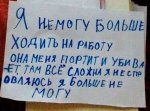 Я НЕМОГУ БОЛЬШЕ
ХОДИТЬ НА РАБОТУ
ОНА МЕНЯ ПОРТИТ И УБИВА
ЕТ ТАМ ВСЁ СЛОЖНА Я НЕ СПР
ОВЛЯЮСЬ Я БОЛЬШЕ НЕ
МОГУ